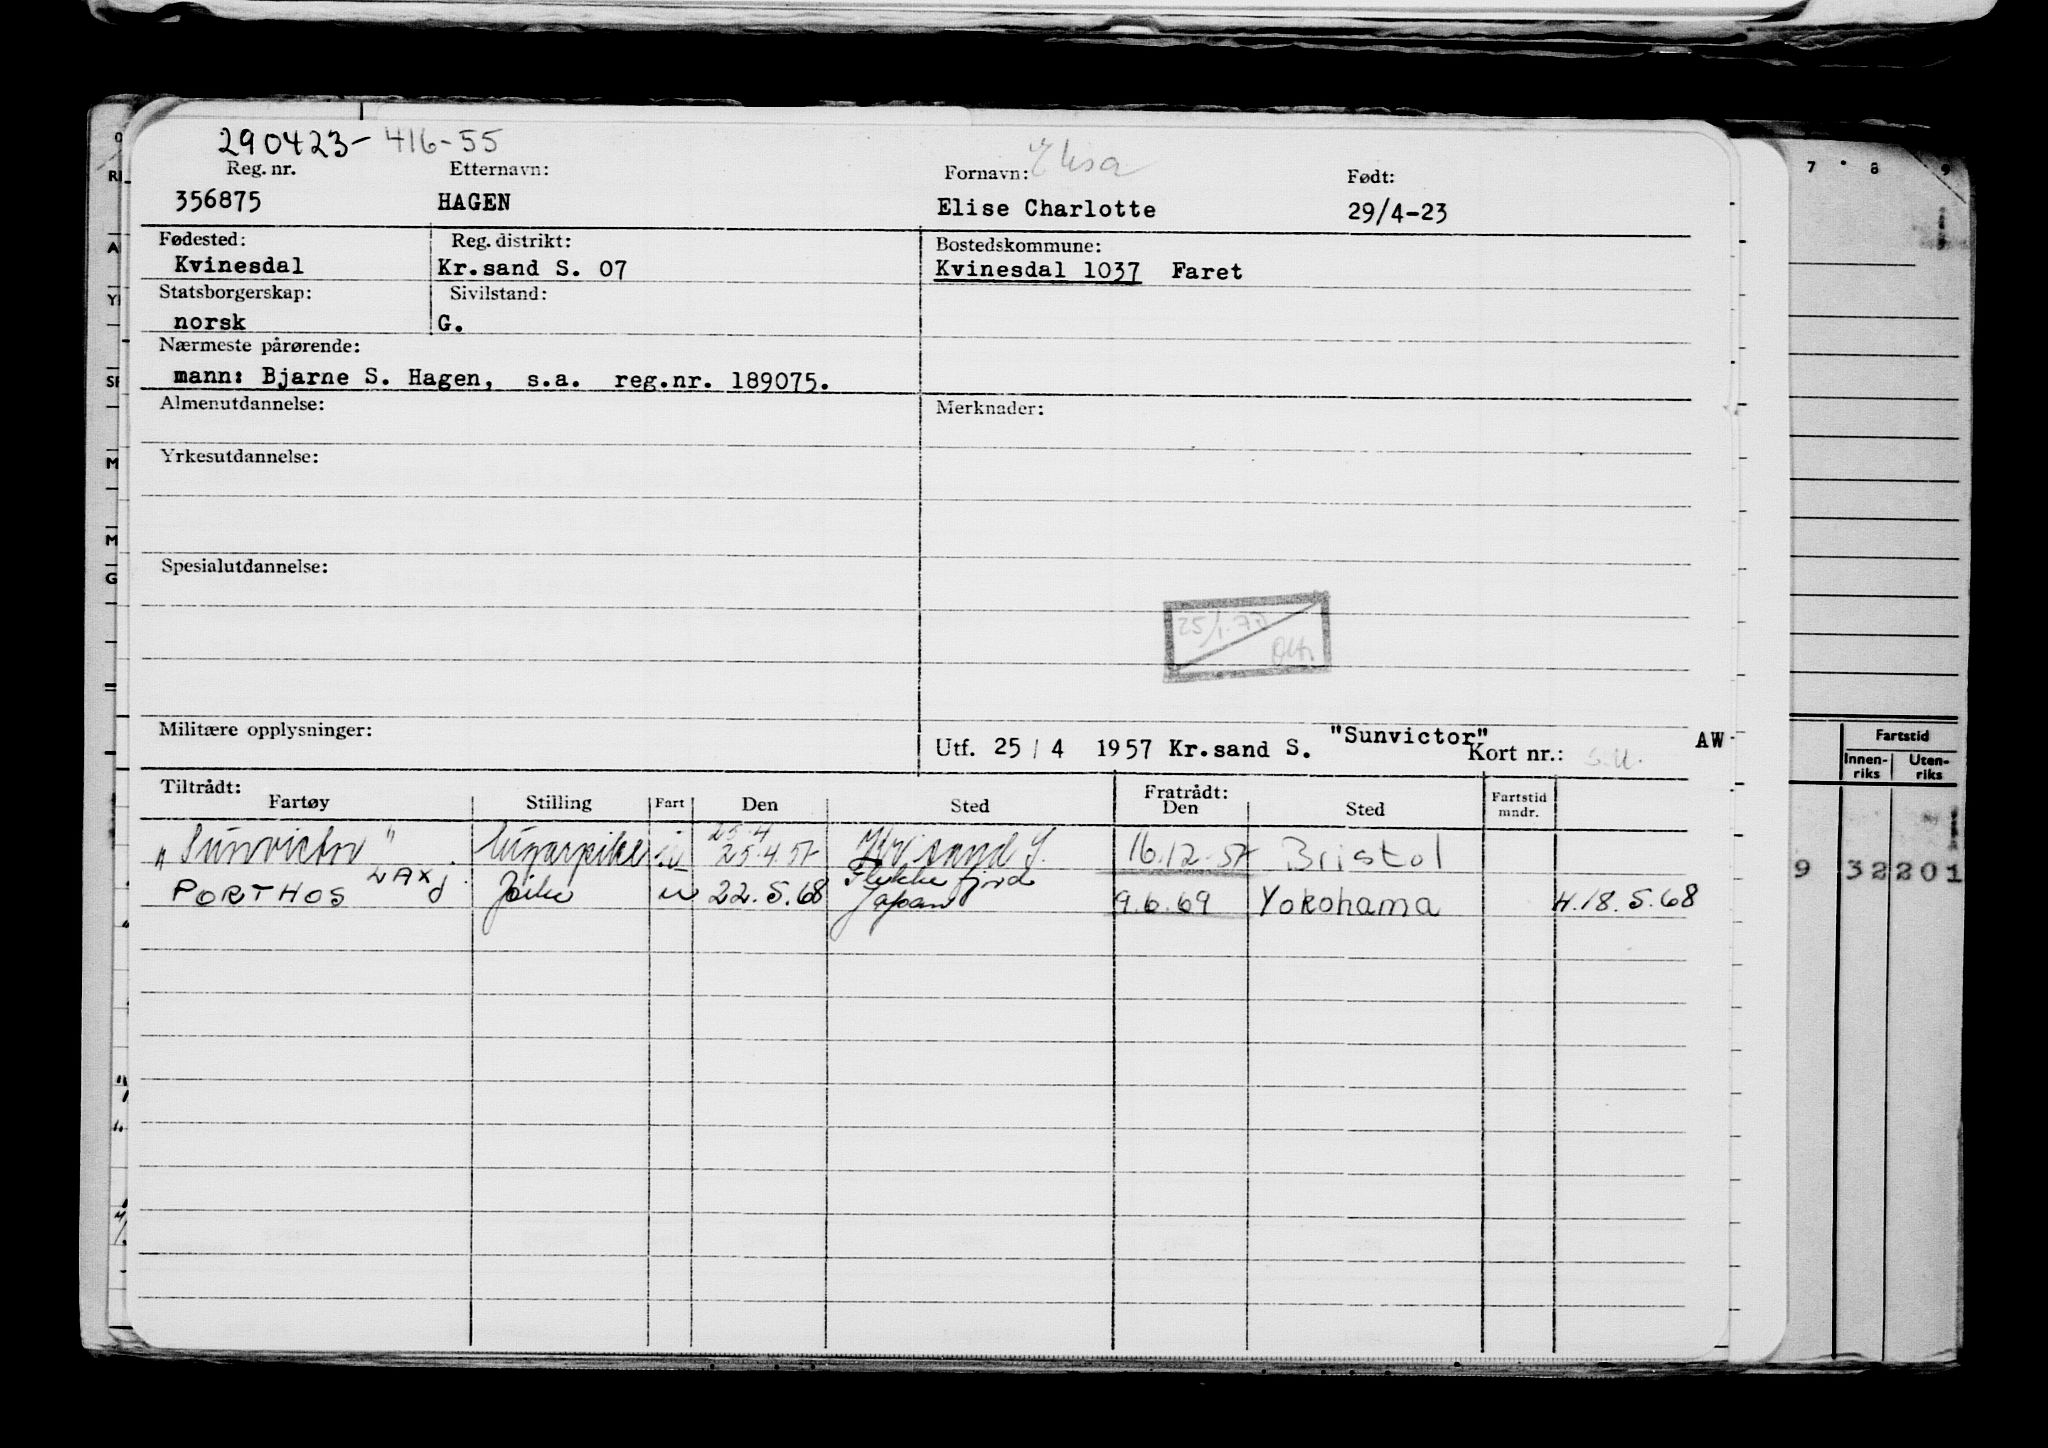 290423-416-55
Reg. nr. Etternavn: Fornavn: Elisa Født:
356875 HAGEN Elise Charlotte 29/4-23
Fødested: Reg. distrikt: Bostedskommune:
Kvinesdal Kr.sand S. 07 Kvinesdal 1037 Faret
Statsborgerskap: Sivilstand:
norsk G.
Nærmeste pårørende:
mann: Bjarne S. Hagen, s.a. reg.nr. 189075.
Almenutdannelse: Merknader:
Yrkesutdannelse:
Spesialutdannelse:
Militære opplysninger:
Utf. 25/4 1957 Kr.sand S. "Sunvictor" Kort nr.: AW
Tiltrådt: Fratrådt:
Fartøy Stilling Fart Den Sted Den Sted Fartstid mndr.
25.4
"Sunvictor" lugarpike u 25.4.57 Kr.sand S. 16.12.57 Bristol
LAXJ Flekkefjord
PORTHOS u 22.5.68 Japan 9.6.69 Yokohama H.18.5.68
7 8 9
Fartstid
Innen-riks Uten-riks
9 32201